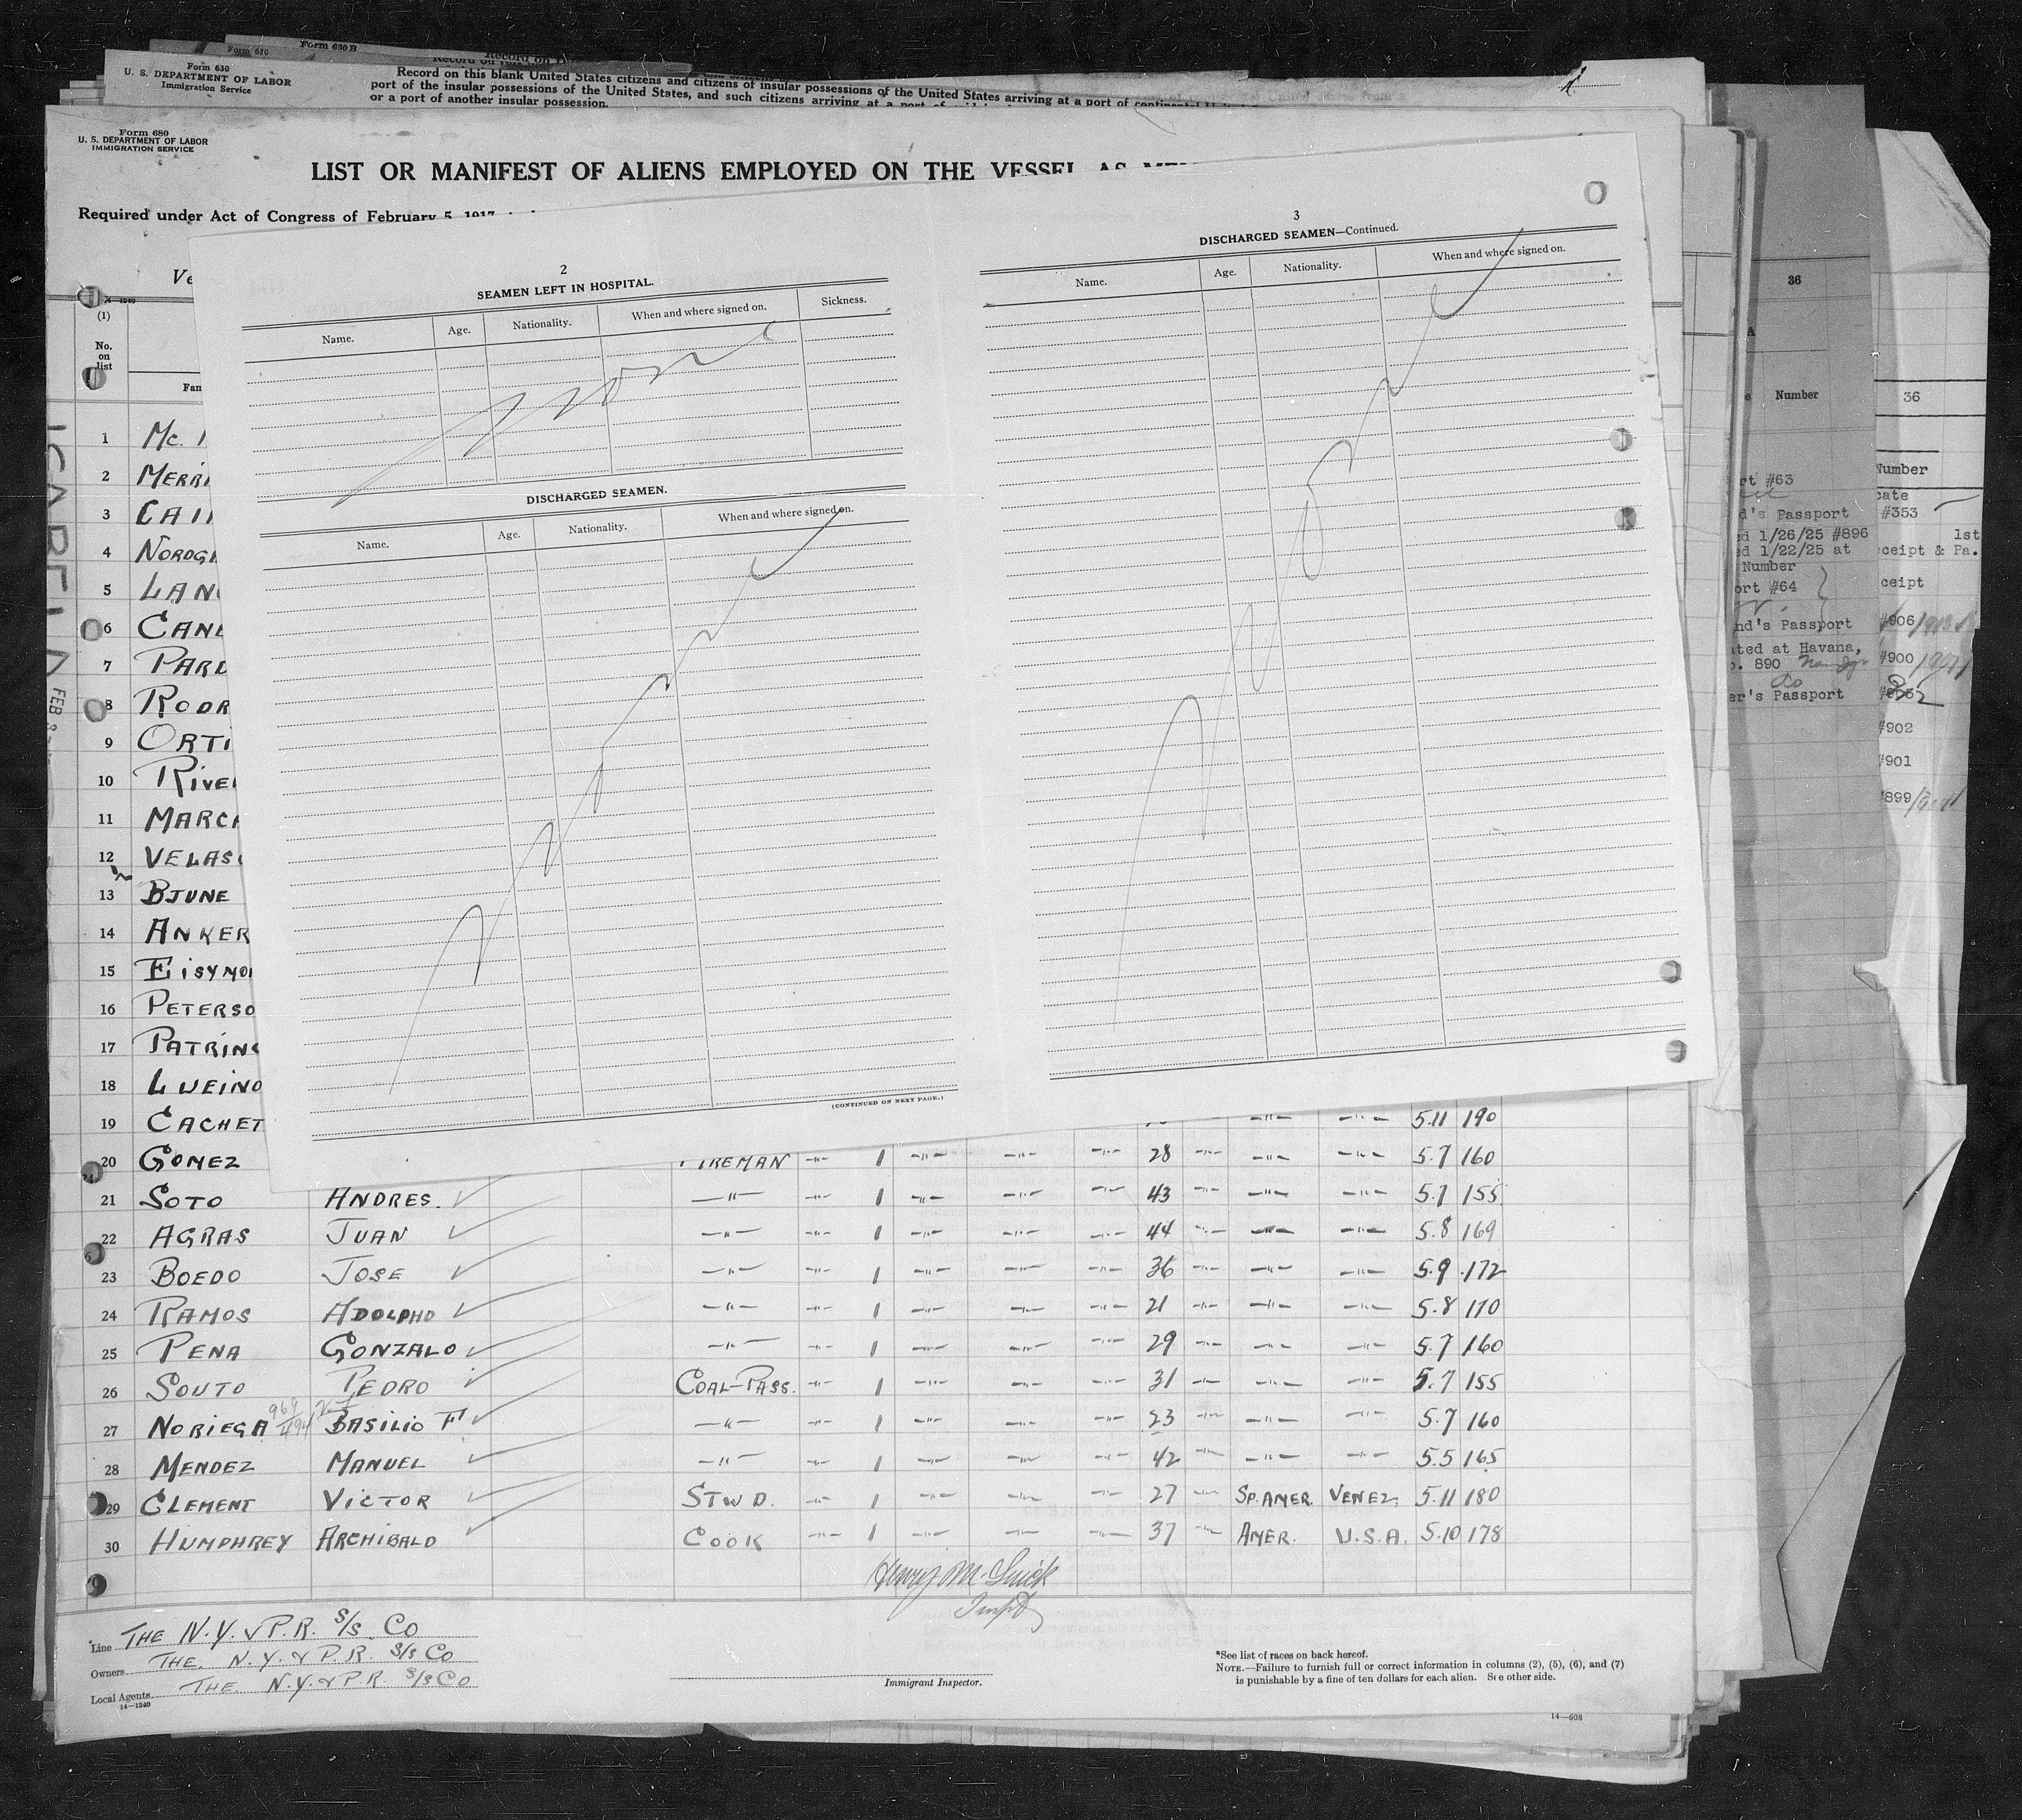 Form 630 B
Form 630
Form 630
U. S. DEPARTMENT OF LABOR
Immigration Service
Record on this blank United States citizens and citizens of insular possessions of the United States arriving at a port of continental
port of the insular possessions of the United States, and such citizens arriving at a port of
or a port of another insular possession.
Form 680
U. S. DEPARTMENT OF LABOR
IMMIGRATION SERVICE
LIST OR MANIFEST OF ALIENS EMPLOYED ON THE VESSEL AS
Required under Act of Congress of February 5, 1917
Ve
(1)
No.
on
list
Fam
ISABELA
FEB 3
2
SEAMEN LEFT IN HOSPITAL.
Name. Age. Nationality. When and where signed on. Sickness.
None
DISCHARGED SEAMEN.
Name. Age. Nationality. When and where signed on.
None
(CONTINUED ON NEXT PAGE.)
3
DISCHARGED SEAMEN—Continued.
Name. Age. Nationality. When and where signed on.
None
36
Number
rt #63
d's Passport
ed 1/26/25 #896
ed 1/22/25 at
Number
ort #64
nd's Passport
ated at Havana,
o. 890
er's Passport
36
Number
cate
#353
1st
ceipt & Pa.
ceipt
#906
#900
#902
#901
#899
1 Mc.
2 MERRI
3 CAI
4 NORDG
5 LAN
6 CAN
7 PARD
8 RODR
9 ORTI
10 RIVE
11 MARC
12 VELAS
13 BJUNE
14 ANKER
15 EISYMO
16 PETERSO
17 PATRIN
18 LUEINO
19 CACHET 5.11 190
20 GOMEZ FIREMAN -"- 1 -"- -"- -"- 28 -"- -"- -"- 5.7 160
21 SOTO ANDRES. -"- -"- 1 -"- -"- -"- 43 -"- -"- -"- 5.7 155
22 AGRAS JUAN -"- -"- 1 -"- -"- -"- 44 -"- -"- -"- 5.8 169
23 BOEDO JOSE -"- -"- 1 -"- -"- -"- 36 -"- -"- -"- 5.9 172
24 RAMOS ADOLPHO -"- -"- 1 -"- -"- -"- 21 -"- -"- -"- 5.8 170
25 PENA GONZALO -"- -"- 1 -"- -"- -"- 29 -"- -"- -"- 5.7 160
26 SOUTO PEDRO COAL-PASS. -"- 1 -"- -"- -"- 31 -"- -"- -"- 5.7 155
27 NORIEGA BASILIO F -"- -"- 1 -"- -"- -"- 23 -"- -"- -"- 5.7 160
28 MENDEZ MANUEL -"- -"- 1 -"- -"- -"- 42 -"- -"- -"- 5.5 165
29 CLEMENT VICTOR STWD. -"- 1 -"- -"- -"- 27 -"- SP. AMER. VENEZ. 5.11 180
30 HUMPHREY ARCHIBALD COOK -"- 1 -"- -"- -"- 37 -"- AMER. U.S.A. 5.10 178
Line THE N.Y. & P.R. S/S. CO
Owners THE. N.Y. & P.R. S/S CO
Local Agents THE. N.Y. & P.R. S/S CO
14—1240
Immigrant Inspector.
*See list of races on back hereof.
NOTE.—Failure to furnish full or correct information in columns (2), (5), (6), and (7)
is punishable by a fine of ten dollars for each alien. See other side.
14—608